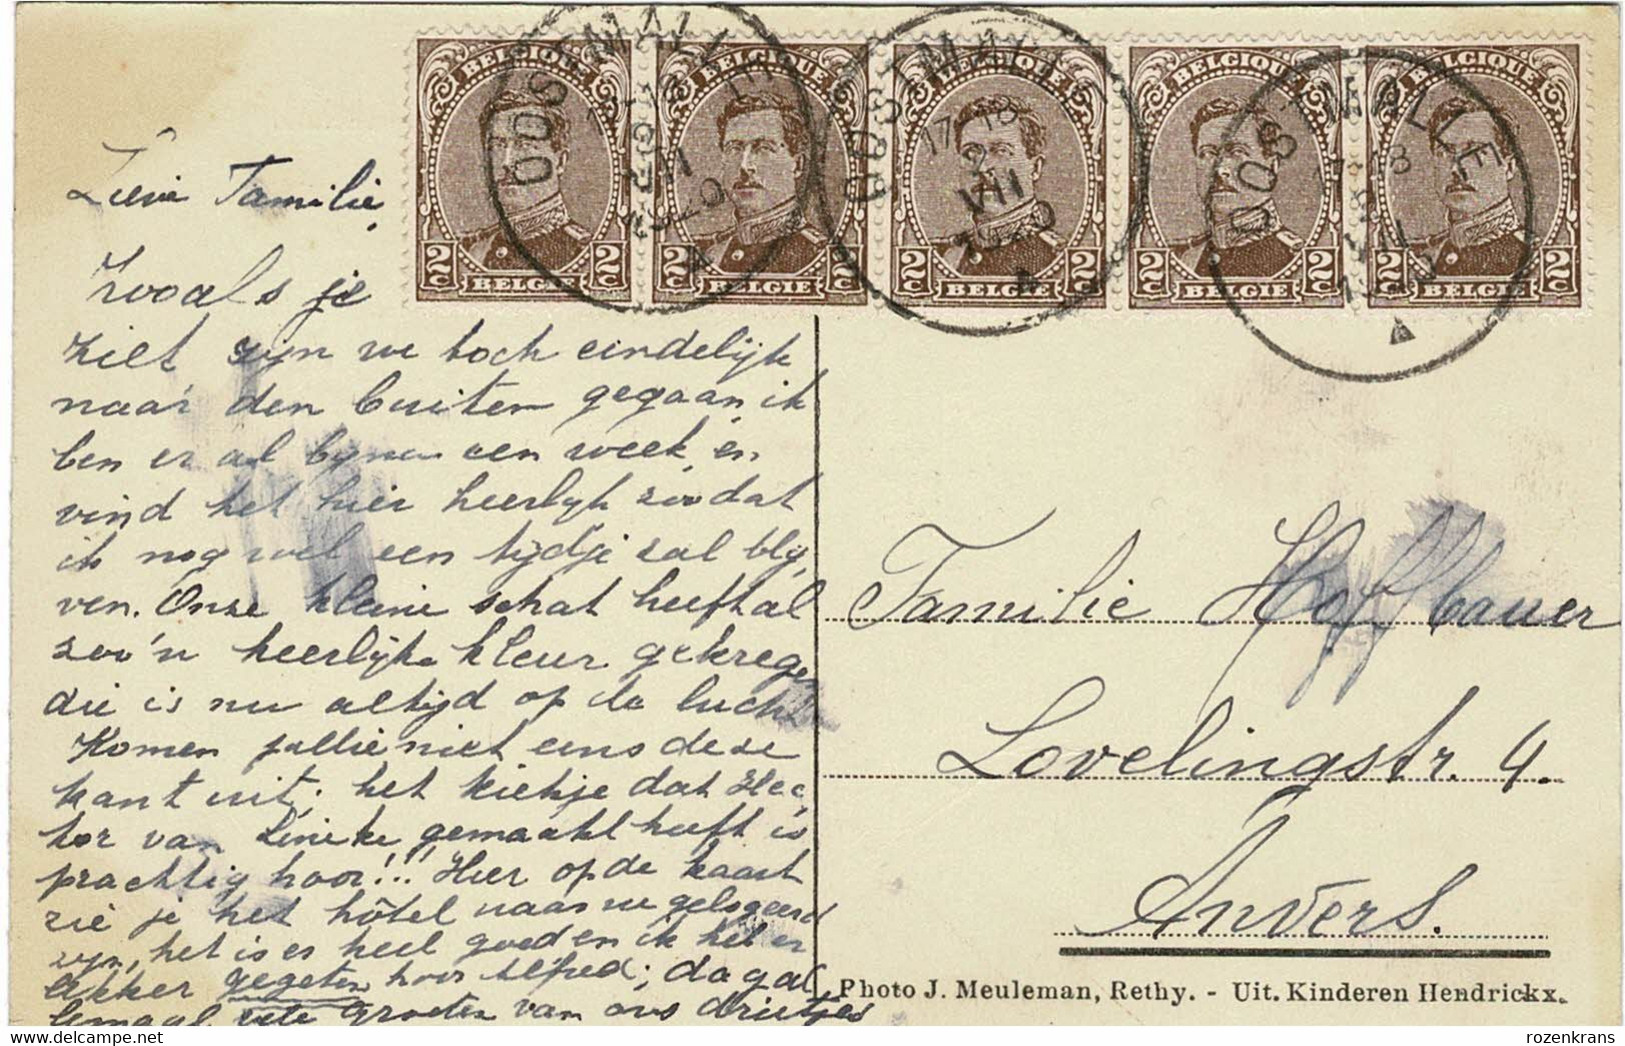 BELGIQUE BELGIQUE BELGIQUE BELGIQUE BELGIQUE
2c 2c 2c 2c 2c 2c 2c 2c 2c 2c
BELGIE BELGIE BELGIE BELGIE BELGIE
OOSTMALLE
OOSTMALLE
17-18
VIII
1920
A
OOSTMALLE
Lieve Familie,
Zooals je
ziet zijn we toch eindelijk
naar den buiten gegaan, ik
ben er al byna een week, en
vind het hier heerlijk zoodat
ik nog wel een tijdje zal bly,
ven. Onze kleine schat heeft al
zoo'n heerlijke kleur gekregen
die is nu altijd op de lucht
Komen jullie niet eens deze
kant uit; het kiekje dat Hec,
tor van Lineke gemaakt heeft is
prachtig hoor!!! Hier op de kaart
zie je het hôtel waar we gelogeerd
zyn, het is er heel goed en ik heb er
lekker gegeten hoor Alfred; dag al
lemaal, vele Groeten van ons drietjes
Familie Hoffbauer
Lovelingstr. 4.
Anvers.
Photo J. Meuleman, Rethy. - Uit. Kinderen Hendrickx.
delcampe.net
rozenkrans